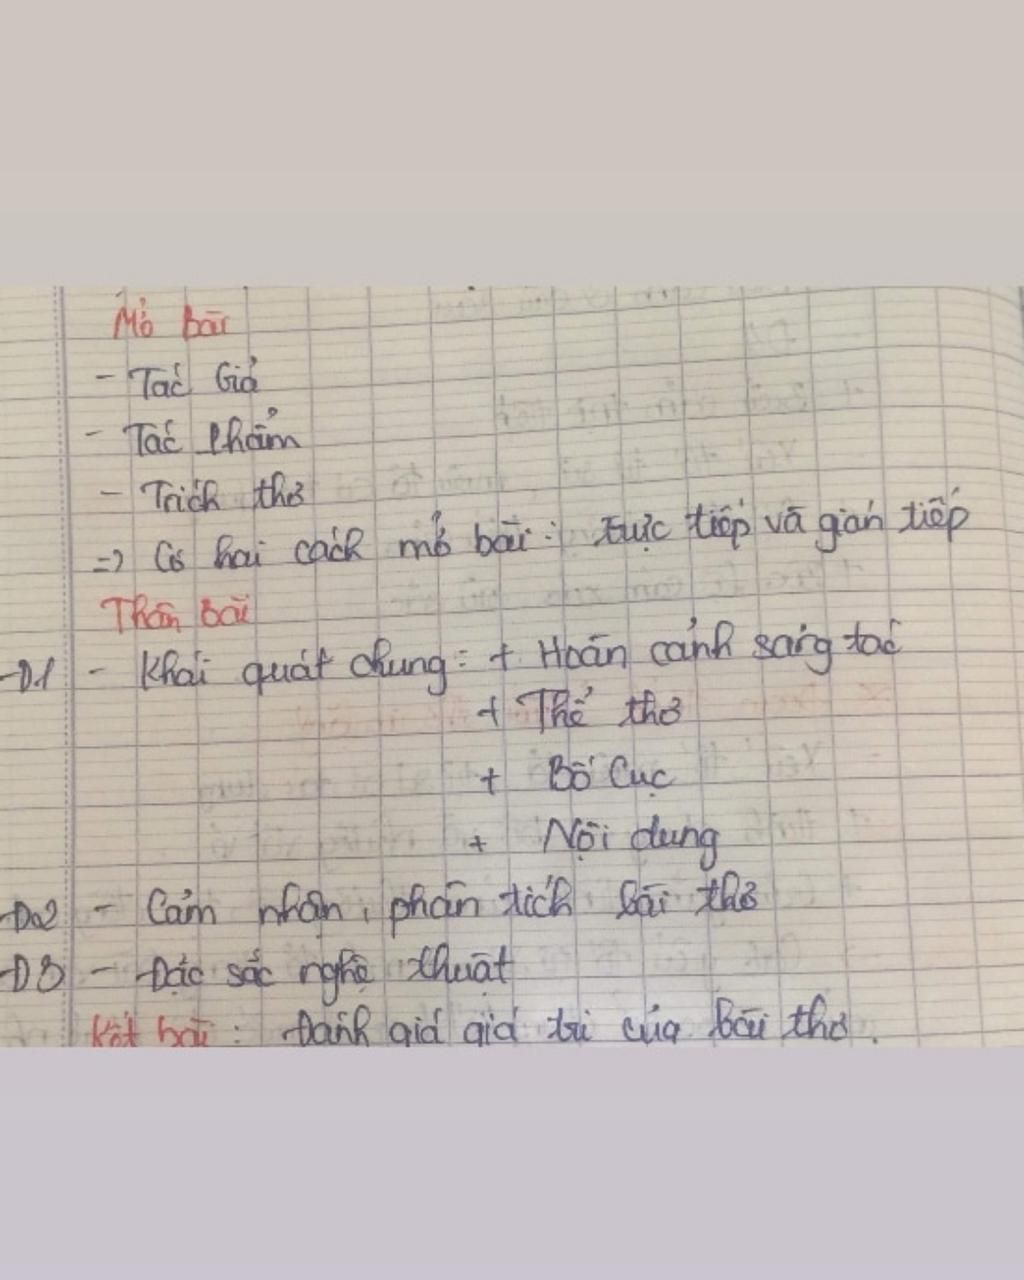 Mở bài
- Tác Giả
- Tác phẩm
- Trích thơ
=> Có hai cách mở bài: trực tiếp và gián tiếp
Thân bài
-Đ1 - Khái quát chung: + Hoàn cảnh sáng tác
+ Thể thơ
+ Bố Cục
+ Nội dung
-Đ2 - Cảm nhận, phân tích bài thơ
-Đ3 - Đặc sắc nghệ thuật
Kết bài: Đánh giá giá trị của bài thơ.